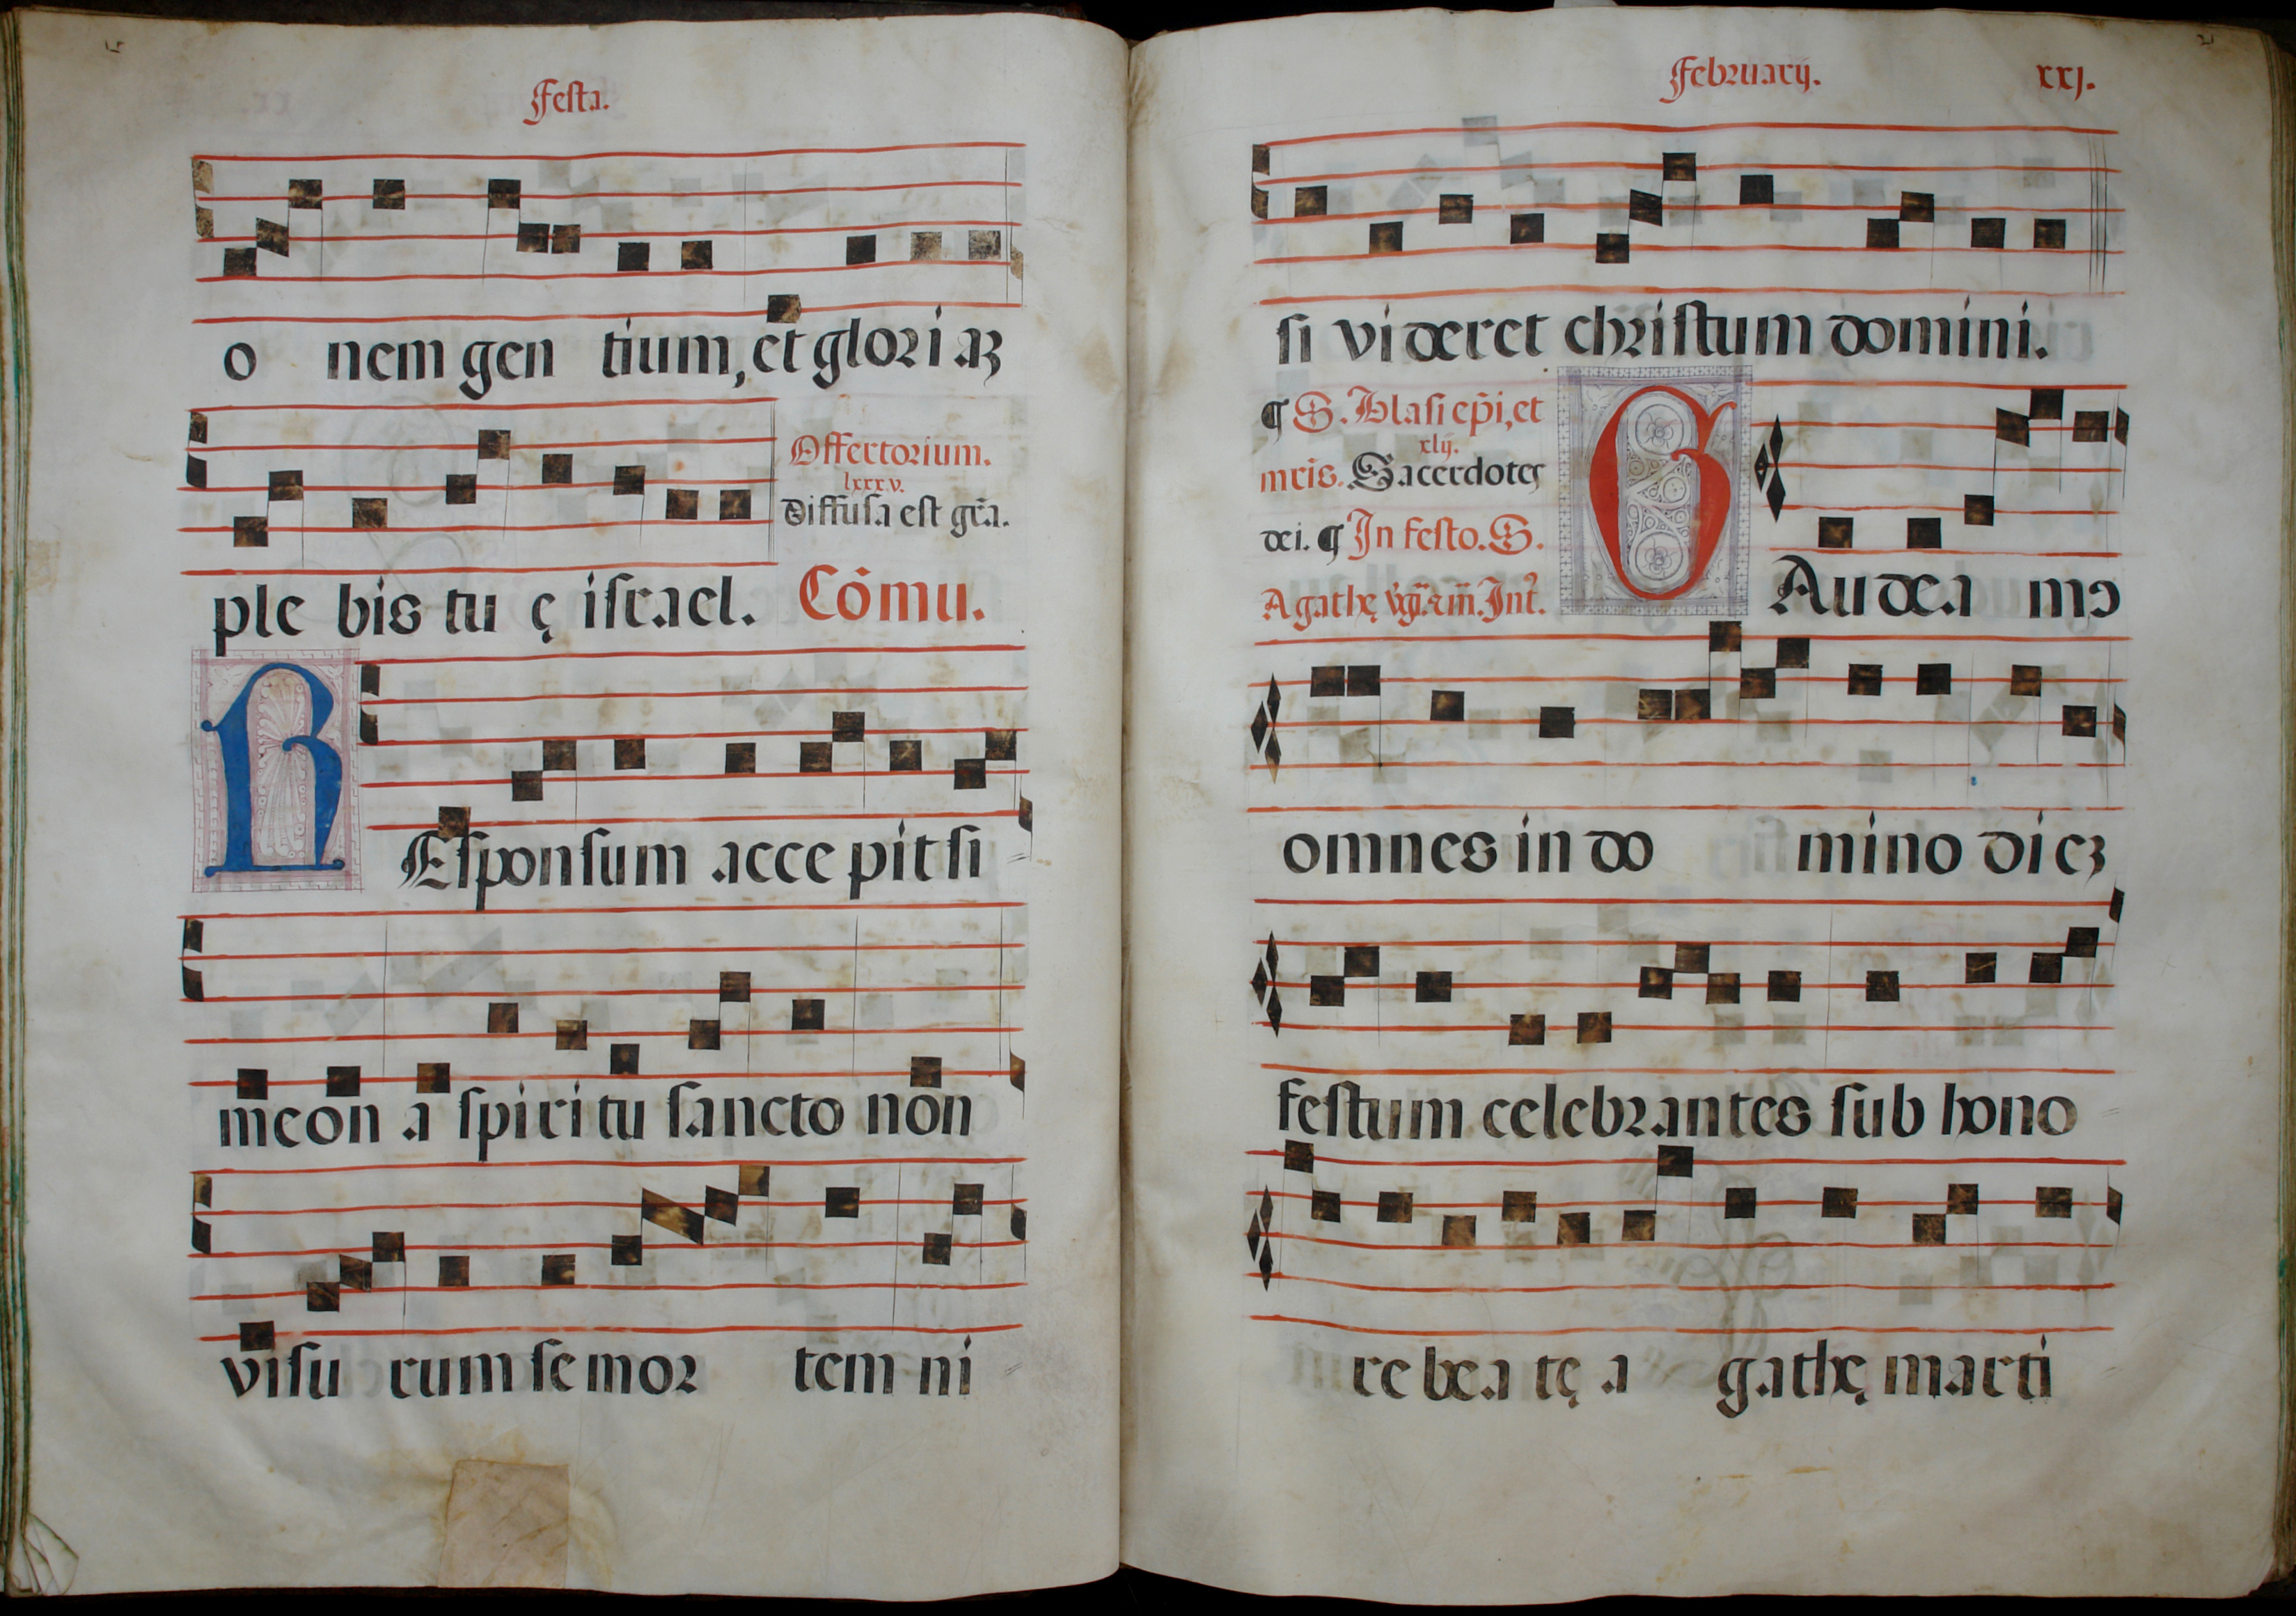 Festa.
o nem gen tium, et glori aꝫ
Offertorium.
lxxxv.
Diffusa est gr̃a.
ple bis tu ę israel. Cõmu.
REsponsum acce pit si
meon a spiritu sancto non
visu rum se mor tem ni
Februarij. xxj.
si videret christum domini.
¶ S. Blasi ep̃i, et
xlij.
mris. Sacerdotes
dei. ¶ In festo. S.
Agathę Int̃.
GAudea mꝰ
omnes in do mino dieꝫ
festum celebrantes sub hono
re bea tę a gathę marti